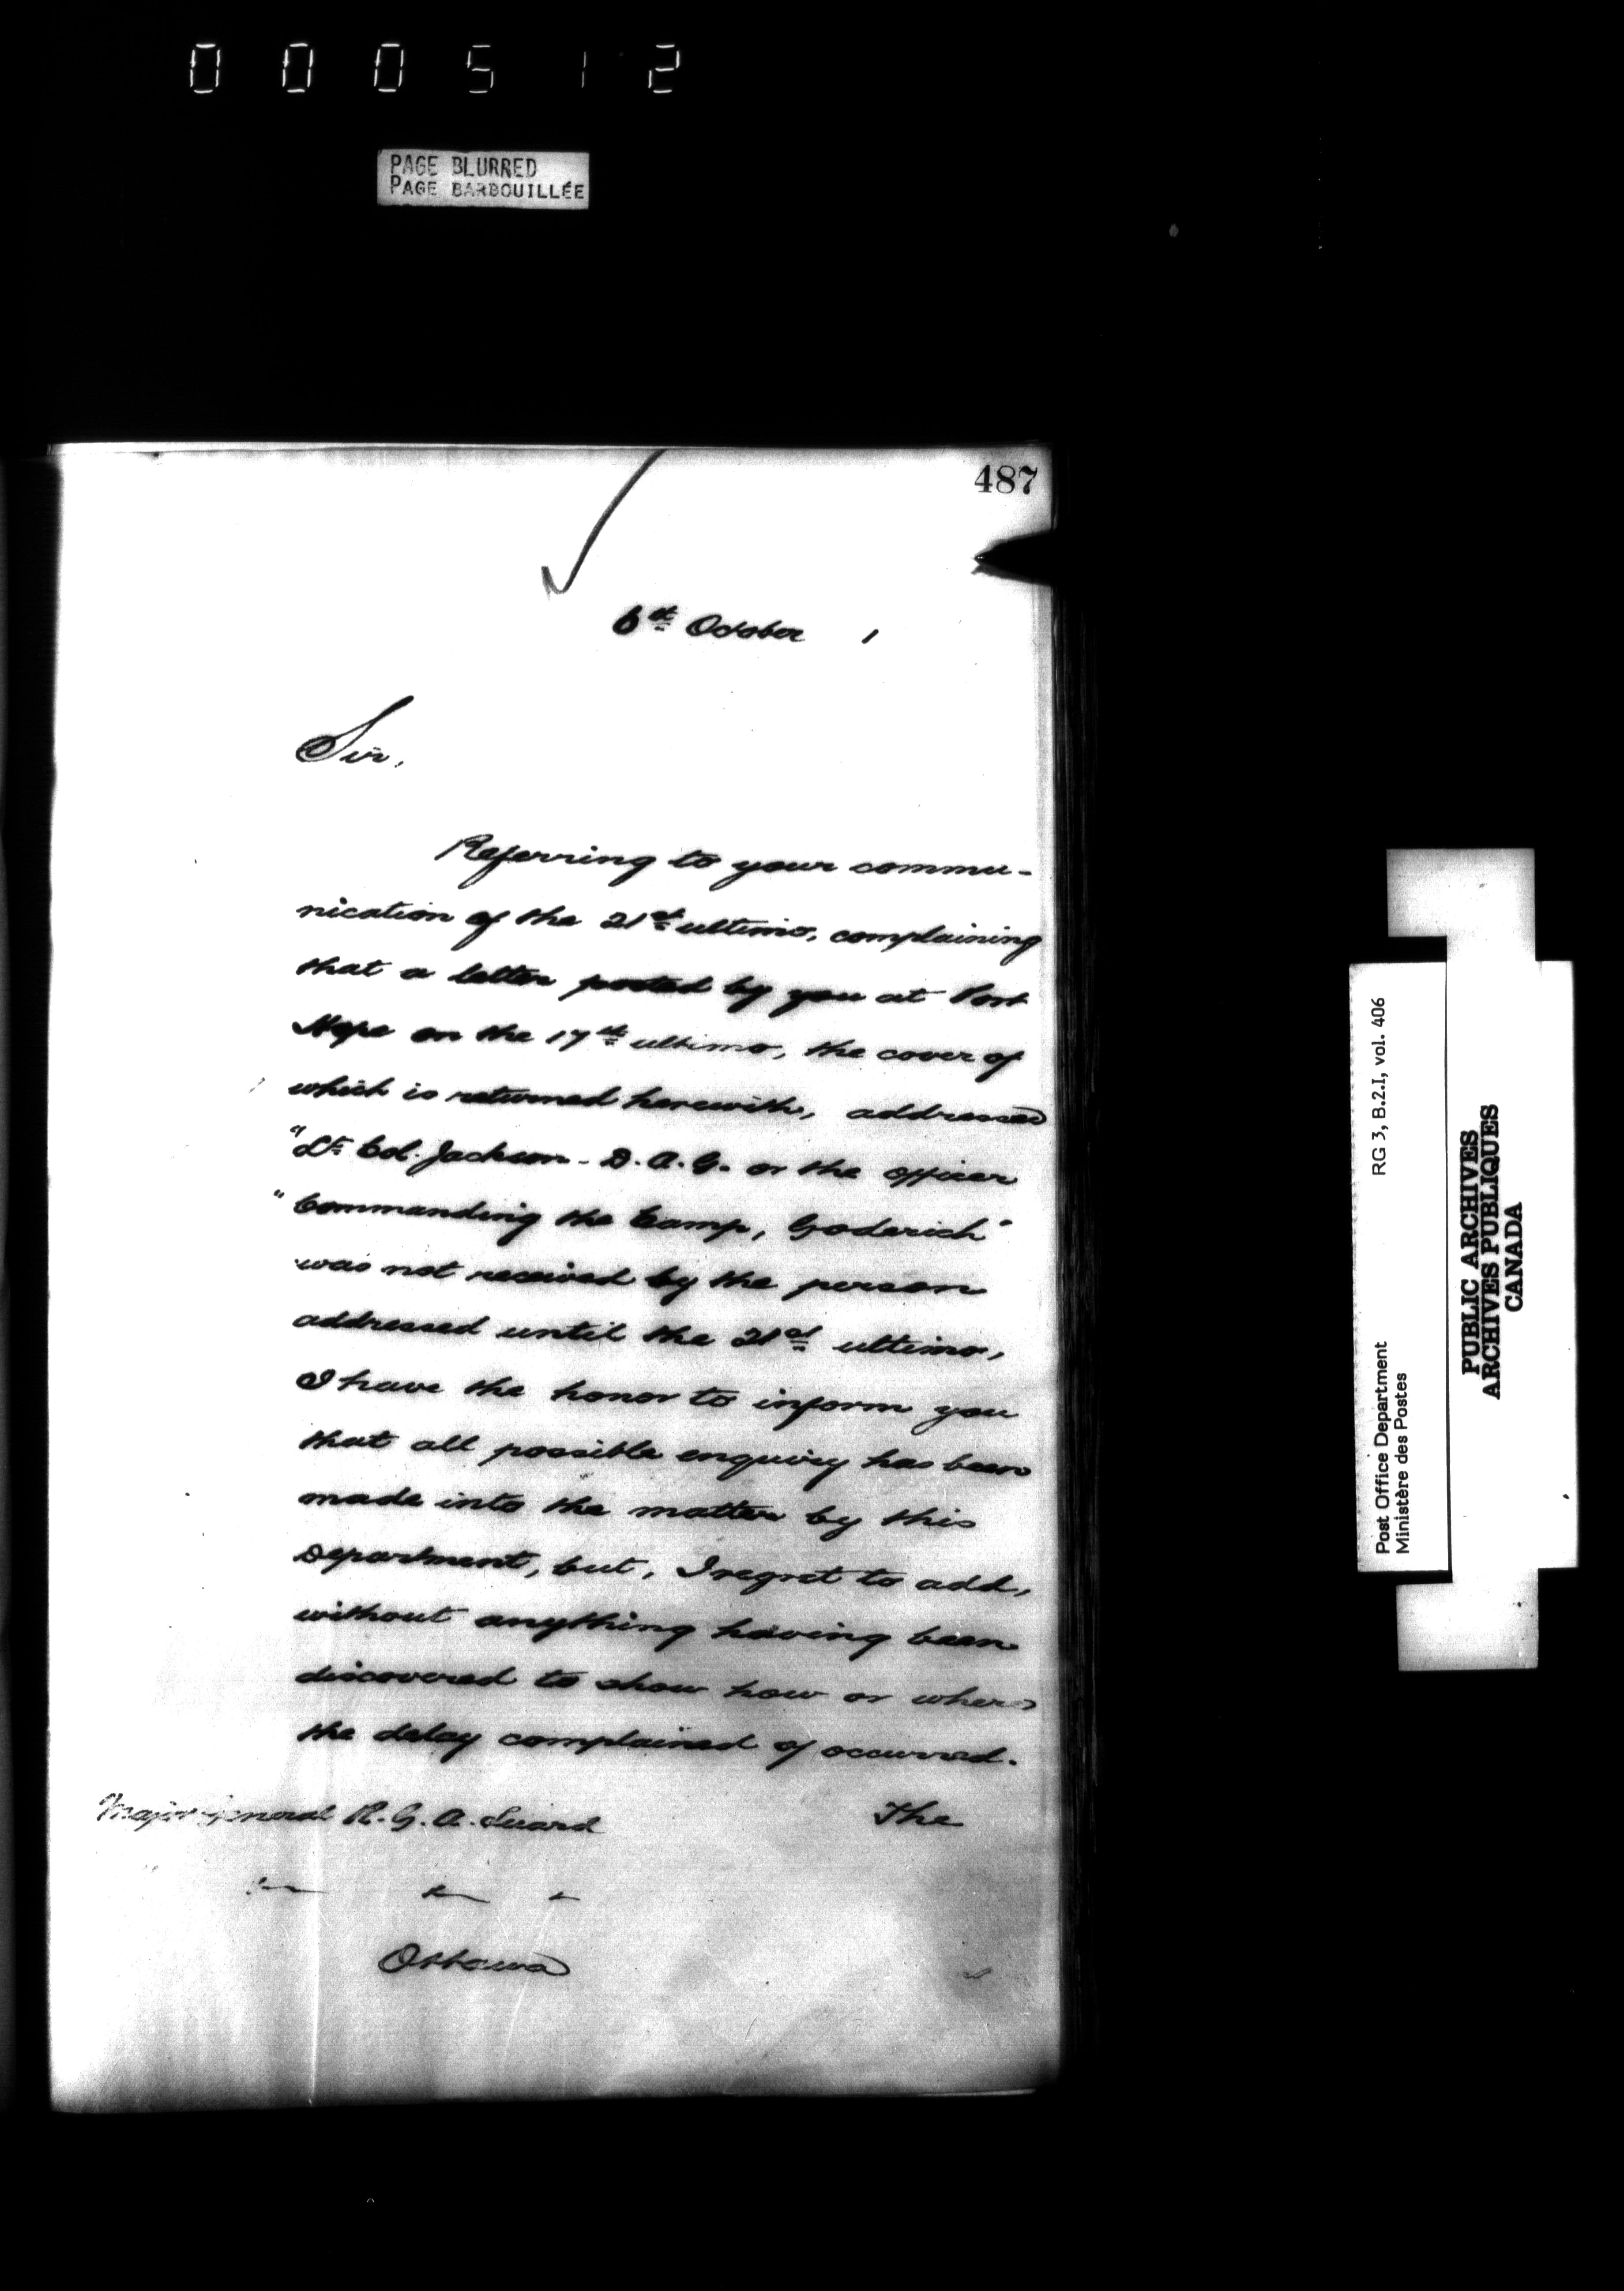 000512
PAGE BLURRED
PAGE BARBOUILLÉE
487
6th October 1
Sir,
Referring to your commu-
nication of the 21st ultimo, complaining
that a letter posted by you at Port
Hope on the 17th ultimo, the cover of
which is returned herewith, addressed
"Lt Col. Jackson - D.A.G. or the officer
"Commanding the Camp, Goderich"
was not received by the person
addressed until the 21st ultimo,
I have the honor to inform you
that all possible enquiry has been
made into the matter by this
Department, but, I regret to add,
without anything having been
discovered to show how or where
the delay complained of occurred.
Major General R. G. A. Luard
The
Ottawa
RG 3, B.2.I, vol. 406
Post Office Department
Ministère des Postes
PUBLIC ARCHIVES
ARCHIVES PUBLIQUES
CANADA